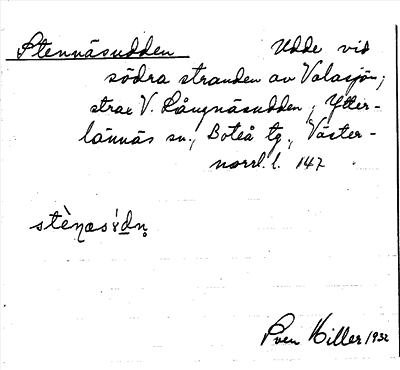 Stennäsudden Udde vid
södra stranden av Valasjön,
strax V. Långnäsudden, Ytter-
lännäs sn., Boteå tg., Väster-
norrl. l. 147
Sven Hiller 1932